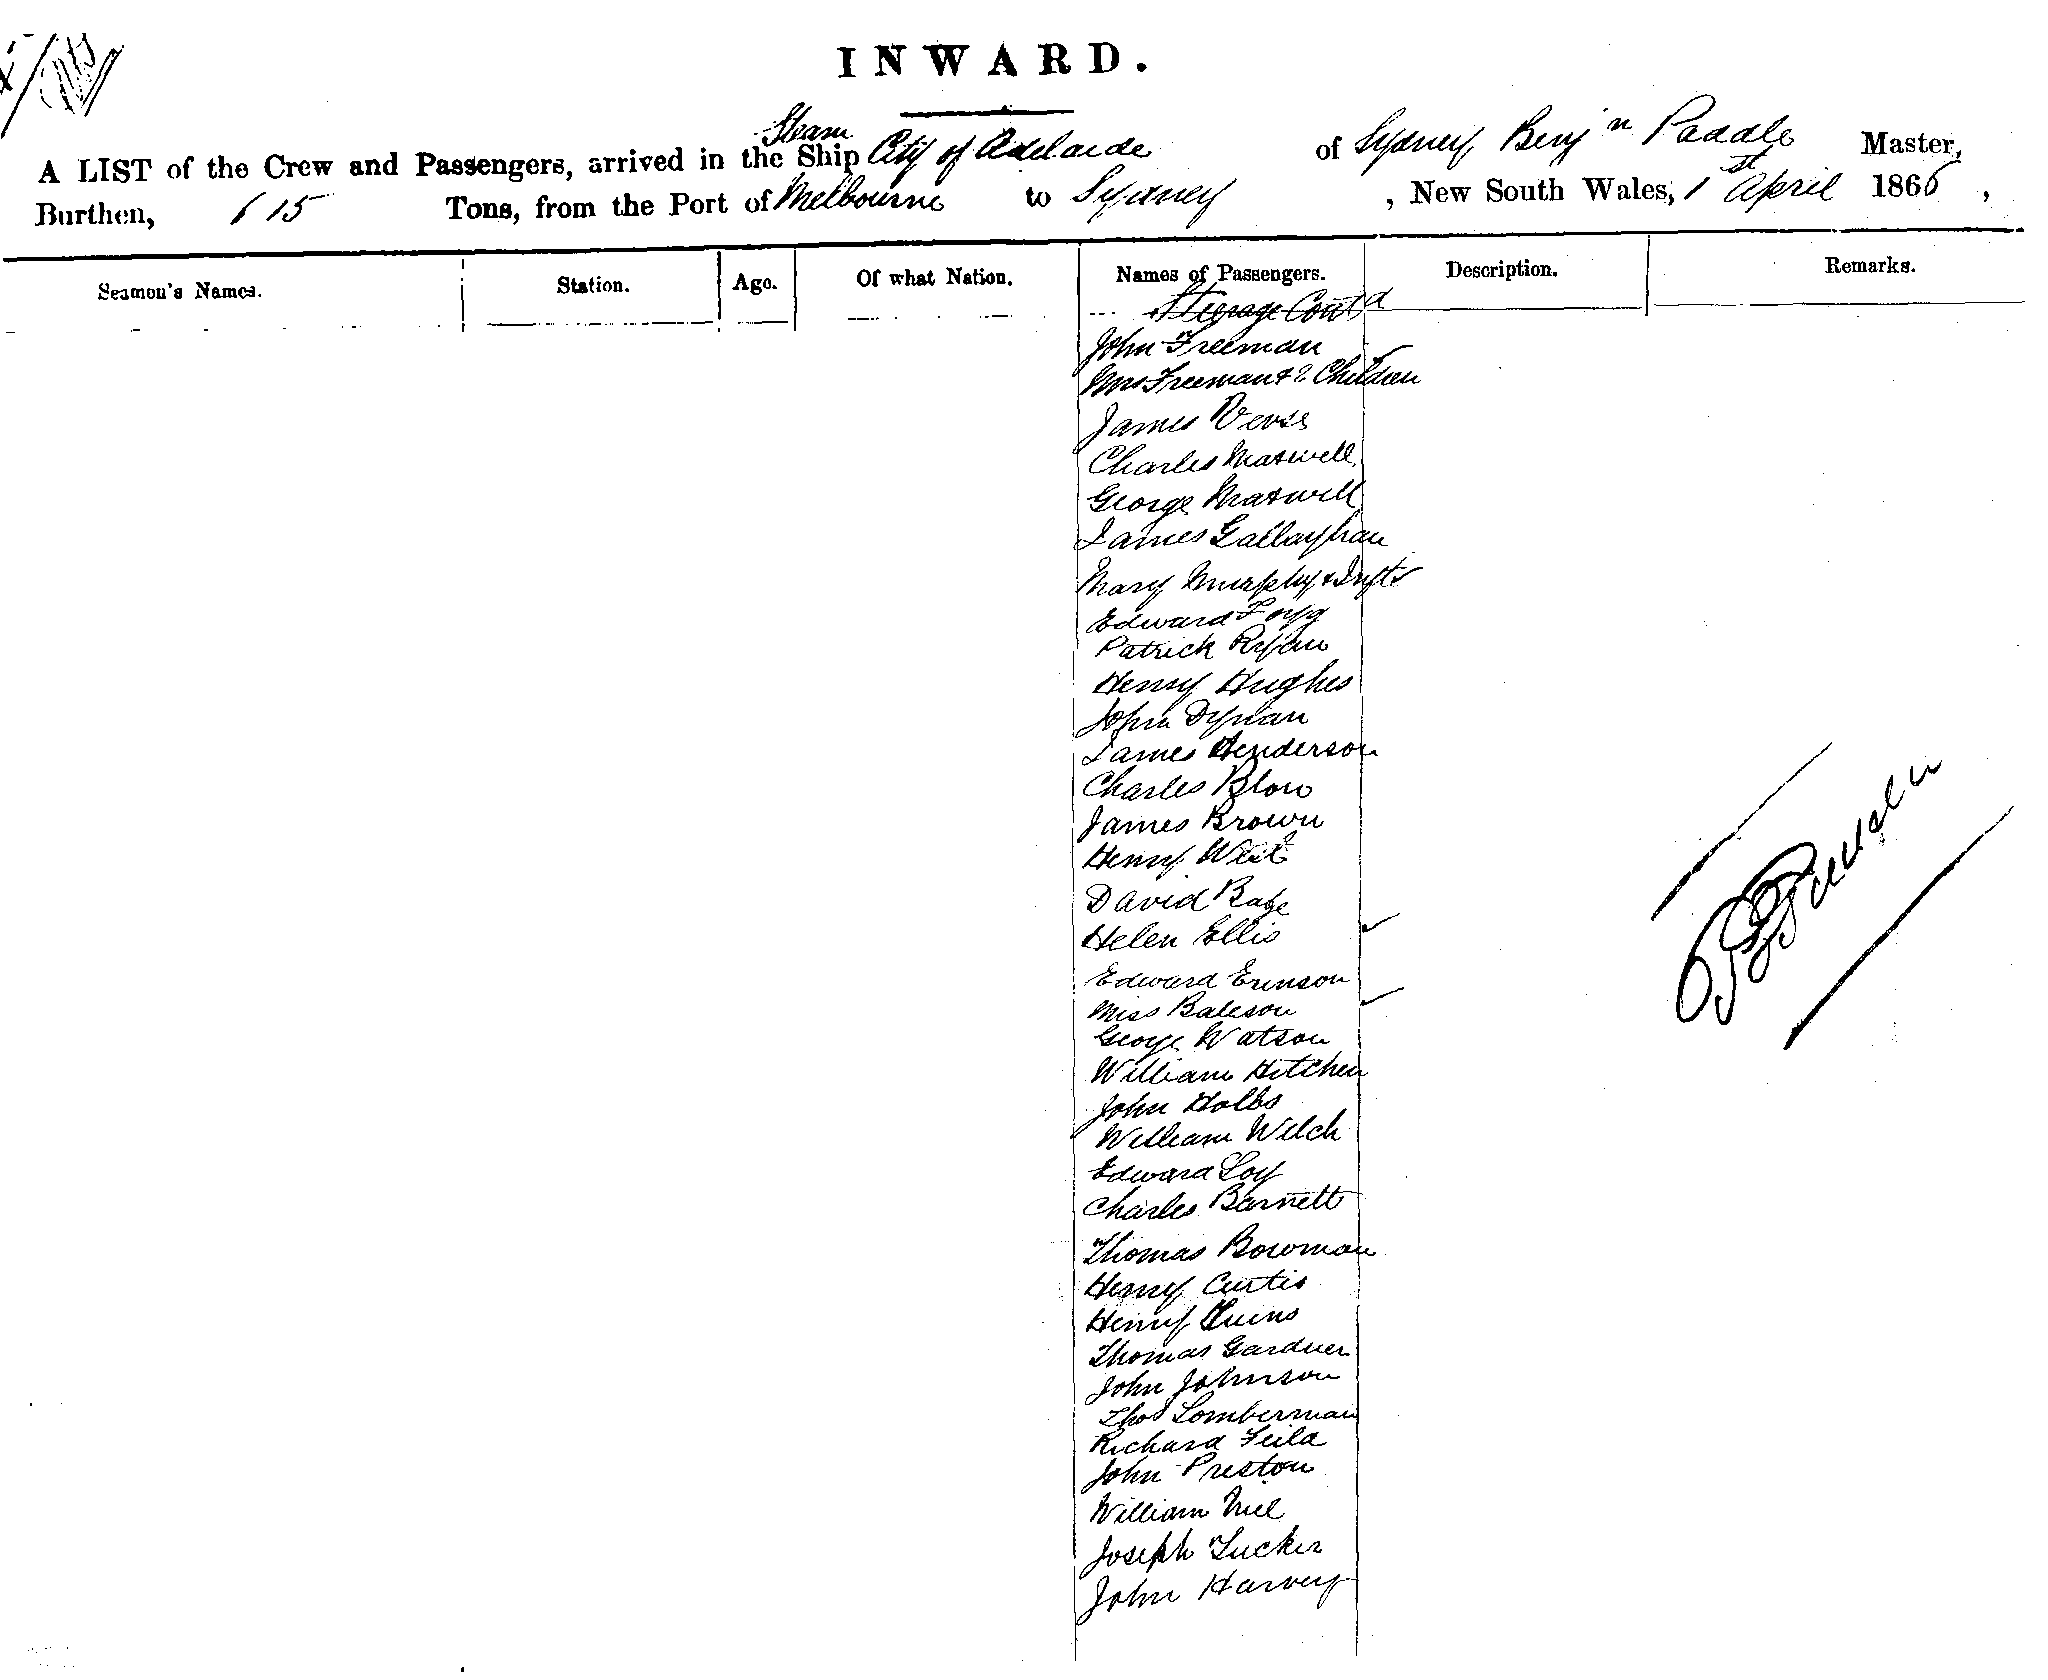 INWARD.
Steam
A LIST of the Crew and Passengers, arrived in the Ship City of Adelaide of Sydney Benjn Paddle Master,
Burthen, 615 Tons, from the Port of Melbourne to Sydney , New South Wales, 1st April 1866 ,
Seamen's Names. Station. Age. Of what Nation. Names of Passengers. Description. Remarks.
Steerage Contd
John Freeman
Mrs Freeman & 2 Children
James
Charles Maxwell
George Maxwell
James Gallaghan
Mary Murphy & Inft
Edward Fogg
Patrick Ryan
Henry Hughes
John Dynan
James Henderson
Charles Blow
James Brown
Henry West
David
Helen Ellis
Edward Erinson
Miss Bateson
George Watson
William Hitchen
John Holbs
William Welch
Edward Loy
Charles Barnett
Thomas Bowman
Henry Curtis
Henry
Thomas Gardner
John Johnson
Thos Lomberman
Richard
John Preston
William Niel
Joseph Tucker
John Harvey